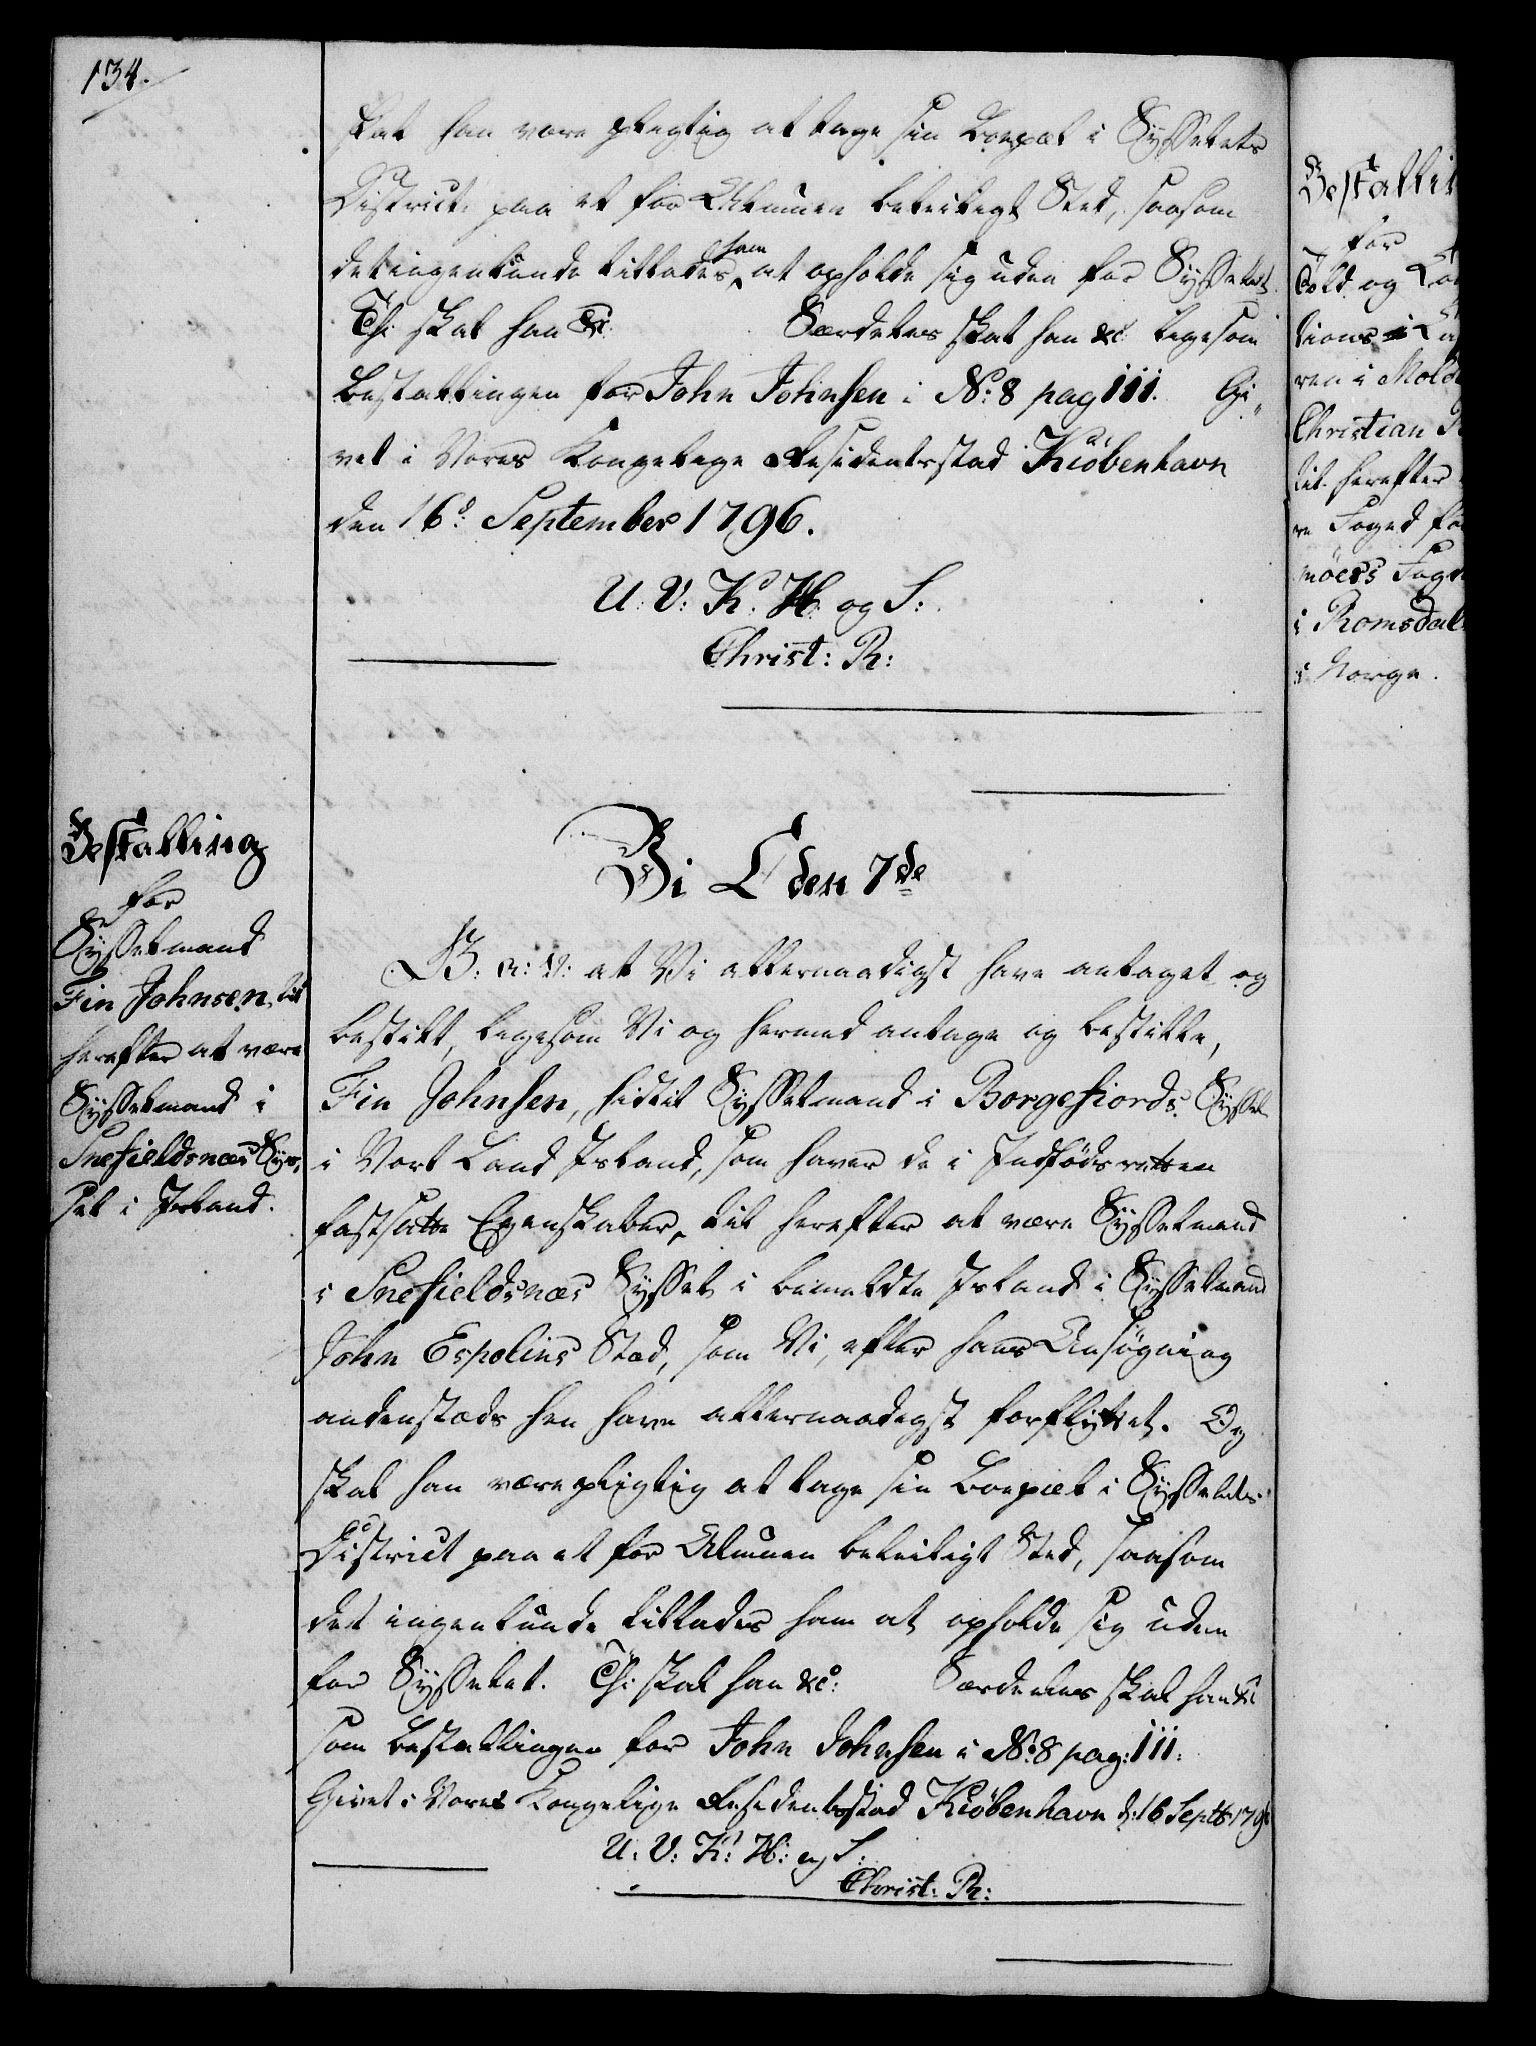 134.
skal han være pligtig at tage sin Boepæl i Sysselets
District, paa et for Almuen beleiligt Sted, saasom
det ingenlunde tillades ham at opholde sig uden for Sysselet.
Thi skal han &c. Særdeles skal han &c. ligesom
Bestallingen for John Johnsen i No: 8 pag 111. Gi„
vet i Vores Kongelige Residentzstad Kiöbenhavn
den 16d: September 1796.
U: V: K: H: og S:
Christ: R:
Bestalling
for
Sysselmand
Fin Johnsen, til
herefter at være
Sysselmand i
Snefieldsnæs Sys„
sel i Island.
Vi C den 7de
G: A: V: at Vi allernaadigst have antaget og
bestilt, ligesom Vi og hermed antage og bestille,
Fin Johnsen, hidtil Sysselmand i Borgefiords Syssel
i Vort Land Island, som haver de i Indfödsretten
fastsatte Egenskaber, til herefter at være Sysselmand
i Snefieldsnæs Syssel i bemeldte Island i Sysselmand
John Espolins Sted, som Vi, efter hans Ansøgning
andenstæds hen have allernaadigst forflyttet. Og
skal han være pligtig at tage sin Boepæl i Sysselets
District paa et for Almuen beleiligt Sted, saasom
det ingenlunde tillades ham at opholde sig uden
for Sysselet. Thi skal han &c: Særdeles skal han &c
som Bestallingen for John Johnsen i No: 8 pag: 111.
Givet i Vores Kongelige Residentzstad Kiöbenhavn d: 16 Septb: 1796
U: V: K: H: og S:
Christ: R:
Bestalli
for
Told og Co
tions i
ren i Mold
Christian
til herefter
re Foged fo
möers Fog
i Romsdal
i Norge.